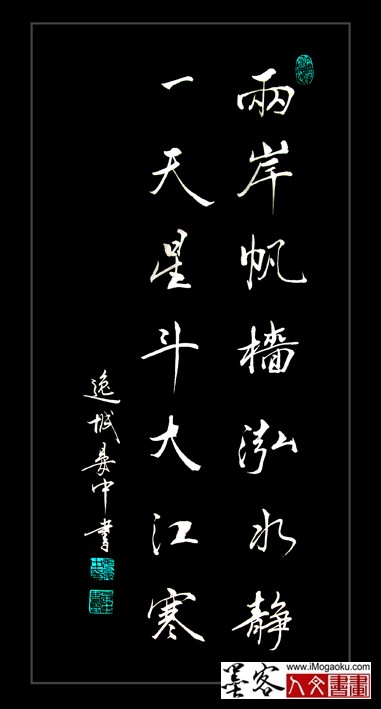 兩岸帆檣泓水静
一天星斗大江寒
逸城中書
墨客
www.iMogaoku.com
人文書畫